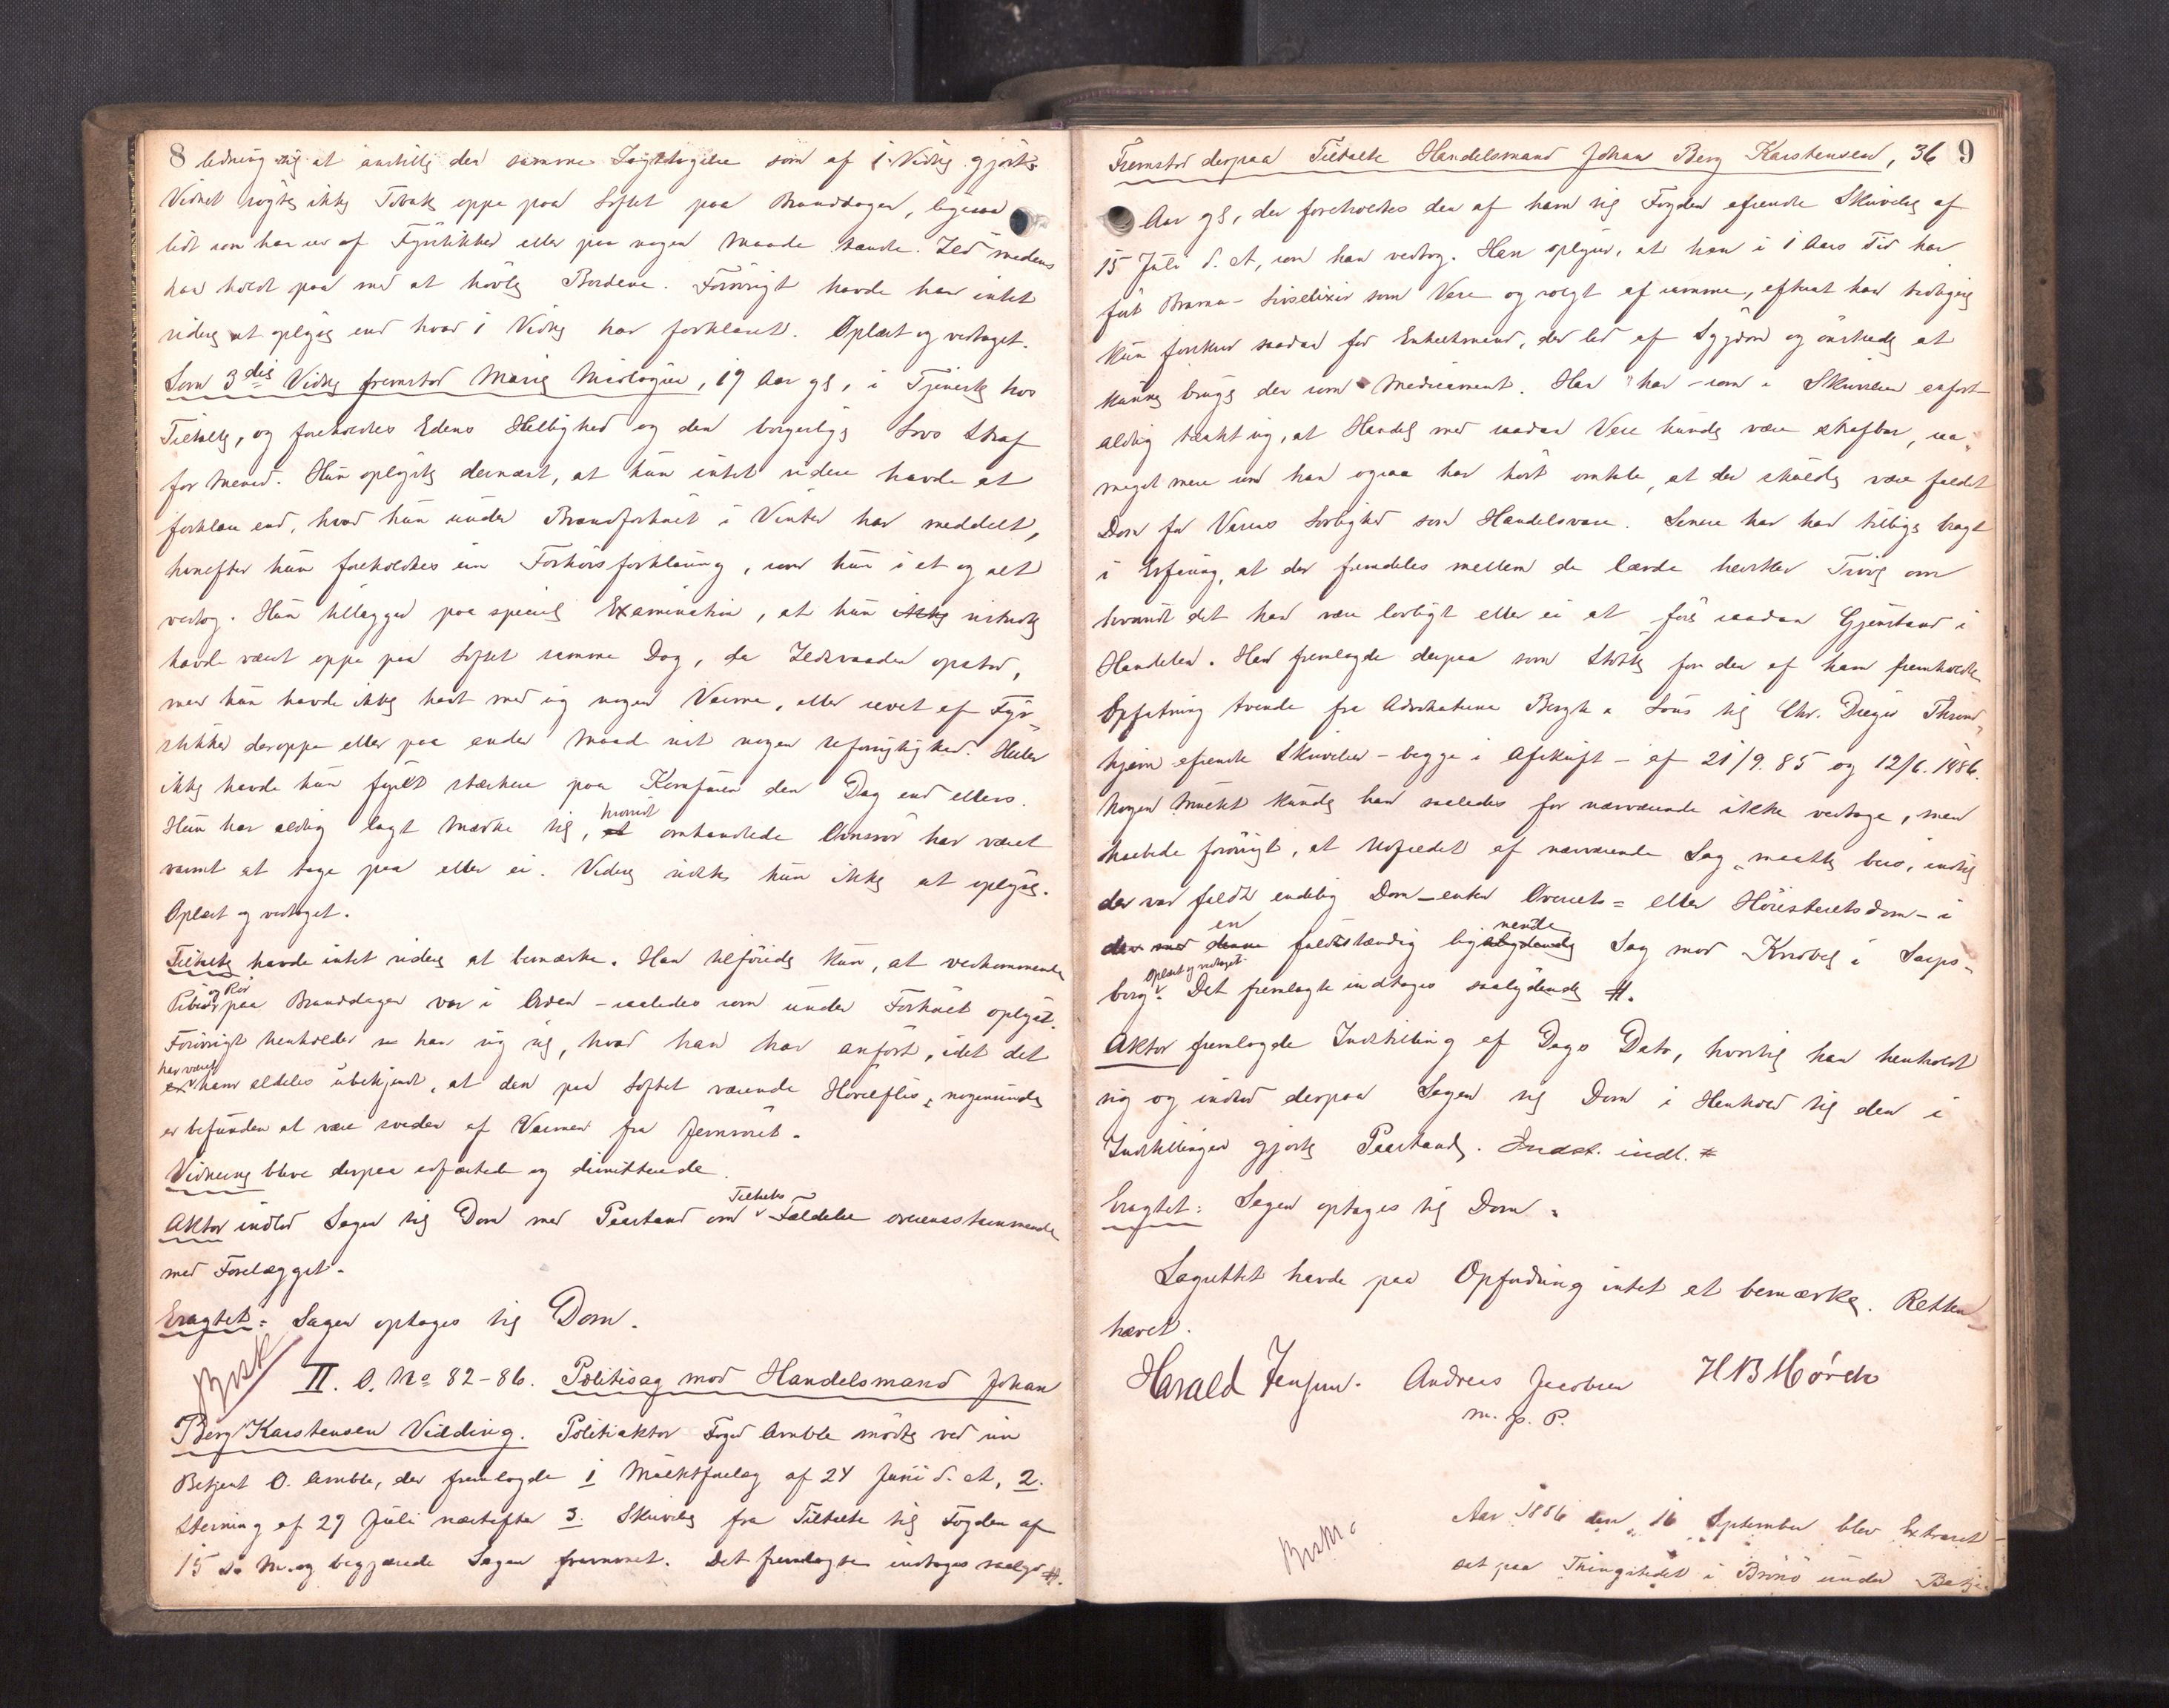 8
ledning til at anstille den samme Iagttagelse som af 1 Vidne gjort.
Vidnet røgte ikke Tobak oppe paa Loftet paa Branddagen, ligesaa
lidt som han rev af Fyrstikker eller paa nogen Maade tændte Ild medens
han holdt paa med at høvle Bordene. Forøvrigt havde han intet
videre at oplyse end hvad 1 Vidne har forklaret. Oplæst og vedtaget.
Som 3die Vidne fremstod Marie, 19 Aar gl, i Tjeneste hos
Tiltalte, og foreholdtes Edens Hellighed og den borgerlige Lovs Straf
for Mened. Hun oplyste dernæst, at hun intet videre havde at
forklare end, hvad hun under Brandforhøret i Vinter har meddelt,
hvorefter hun foreholdtes sin Forhørsforklaring, som hun i et og alt
vedtog. Hun tillægger paa speciel Examination, at hun ikke vistnok
havde været oppe paa Loftet samme Dag, da Ildsvaaden opstod,
men hun havde ikke havt med sig nogen Varme, eller revet af Fyr-
stikker deroppe eller paa anden Maade vist nogen Uforsigtighed. Heller
ikke havde hun fyret stærkere paa Komfuren den Dag end ellers.
Hun har aldrig lagt Mærke til, at hvorvidt omhandlede Ovnsrør har været
varmt at tage paa eller ei. Videre vidste hun ikke at oplyse.
Oplæst og vedtaget.
Tiltalte havde intet videre at bemærke. Han tilføiede kun, at vedkommende
og Rør paa Branddagen var i Orden - saaledes som under Forhøret oplyst.
Forøvrigt henholder han sig til, hvad han har anført, idet det
har været ham aldeles ubekjendt, at den paa Loftet værende Høvelflis nogensinde
er befunden at være sveden af Varmen fra Jernrøret.
Vidnerne bleve derpaa edfæstede og dimitterede.
Aktor indlod Sagen til Dom med Paastand om Tiltaltes Fældelse overensstemmende
med Forelægget.
Eragtet: Sagen optages til Dom.
Besk
II. O. No 82-86. Politisag mod Handelsmand Johan
Berg Karstensen Vidding. Politiaktor Foged Amble mødte ved sin
Betjent O. Amble, der fremlagde 1 Mulktforelæg af 24 Juni d. A, 2.
Stevning af 29 Juli næstefter 3. Skrivelse fra Tiltalte til Fogden af
15 s. M. og begjærede Sagen fremmet. Det fremlagte indtages saalyd #.
9
Fremstod derpaa Tiltalte Handelsmand Johan Berg Karstensen, 36
Aar gl, der foreholdtes den af ham til Fogden afsendte Skrivelse af
15 Juli d. A, som han vedtog. Han oplyser, at han i 1 Aars Tid har
ført Brama-Livselixir som Vare og solgt af samme, efterat han tidligere
kun forskrev saadan for Enkeltmand, der led af Sygdom og ønskede at
kunne bruge den som Medicament. Han har - som i Skrivelsen anført -
aldrig tænkt sig, at Handel med saadan Vare kunde være strafbar, saa
meget mere som han ogsaa har hørt omtale, at der skulde være faldet
Dom for Varens Lovlighed som Handelsvare. Senere har han tillige bragt
i Erfaring, at der fremdeles mellem de lærde hersker Tvivl om
hvorvidt det kan være lovligt eller ei at føre saadan Gjenstand i
Handelen. Han fremlagde derpaa som Støtte for den af ham fremholdte
Opfatning tvende fra Advokaterne Bergh & Løus til Chr. Thrond-
hjem afsendte Skrivelser - begge i Afskrift - af 21/9. 85 og 12/6. 1886.
Nogen Mulkt kunde han saaledes for nærværende ikke vedtage, men
forøvrigt, at Udfaldet af nærværende Sag maatte bero, indtil
der var faldt endelig Dom - enten Overrets- eller Høiesteretsdom - i
den med denne en fuldstændig lignende Sag mod i Sarps-
borg. Oplæst og vedtaget. Det fremlagte indtages saalydende #.
Aktor fremlagde Indstilling af Dags Dato, hvortil han henholdt
sig og indlod derpaa Sagen til Dom i Henhold til den i
Indstillingen gjorte Paastand. Indst. indt. #
Eragtet: Sagen optages til Dom.
Lagrettet havde paa Opfordring intet at bemærke. Retten
hævet.
Harald Jensen. Andreas Jacobsen H B Mørch
m. p. P.
Beskr.
Aar 1886 den 16 September blev Extraret
sat paa Thingstedet i Brønø under Betje